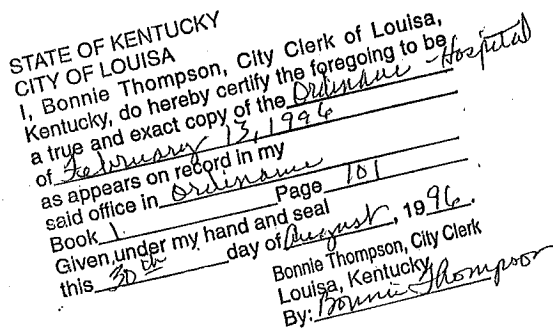 STATE OF KENTUCKY
CITY OF LOUISA
I, Bonnie Thompson, City Clerk of Louisa,
Kentucky, do hereby certify the foregoing to be
a true and exact copy of the Ordinance - Hospital
of February 13, 1996
as appears on record in my
said office in Ordinance
Book 1 Page 101
Given under my hand and seal
this 30th day of August, 1996.
Bonnie Thompson, City Clerk
Louisa, Kentucky
By: Bonnie Thompson